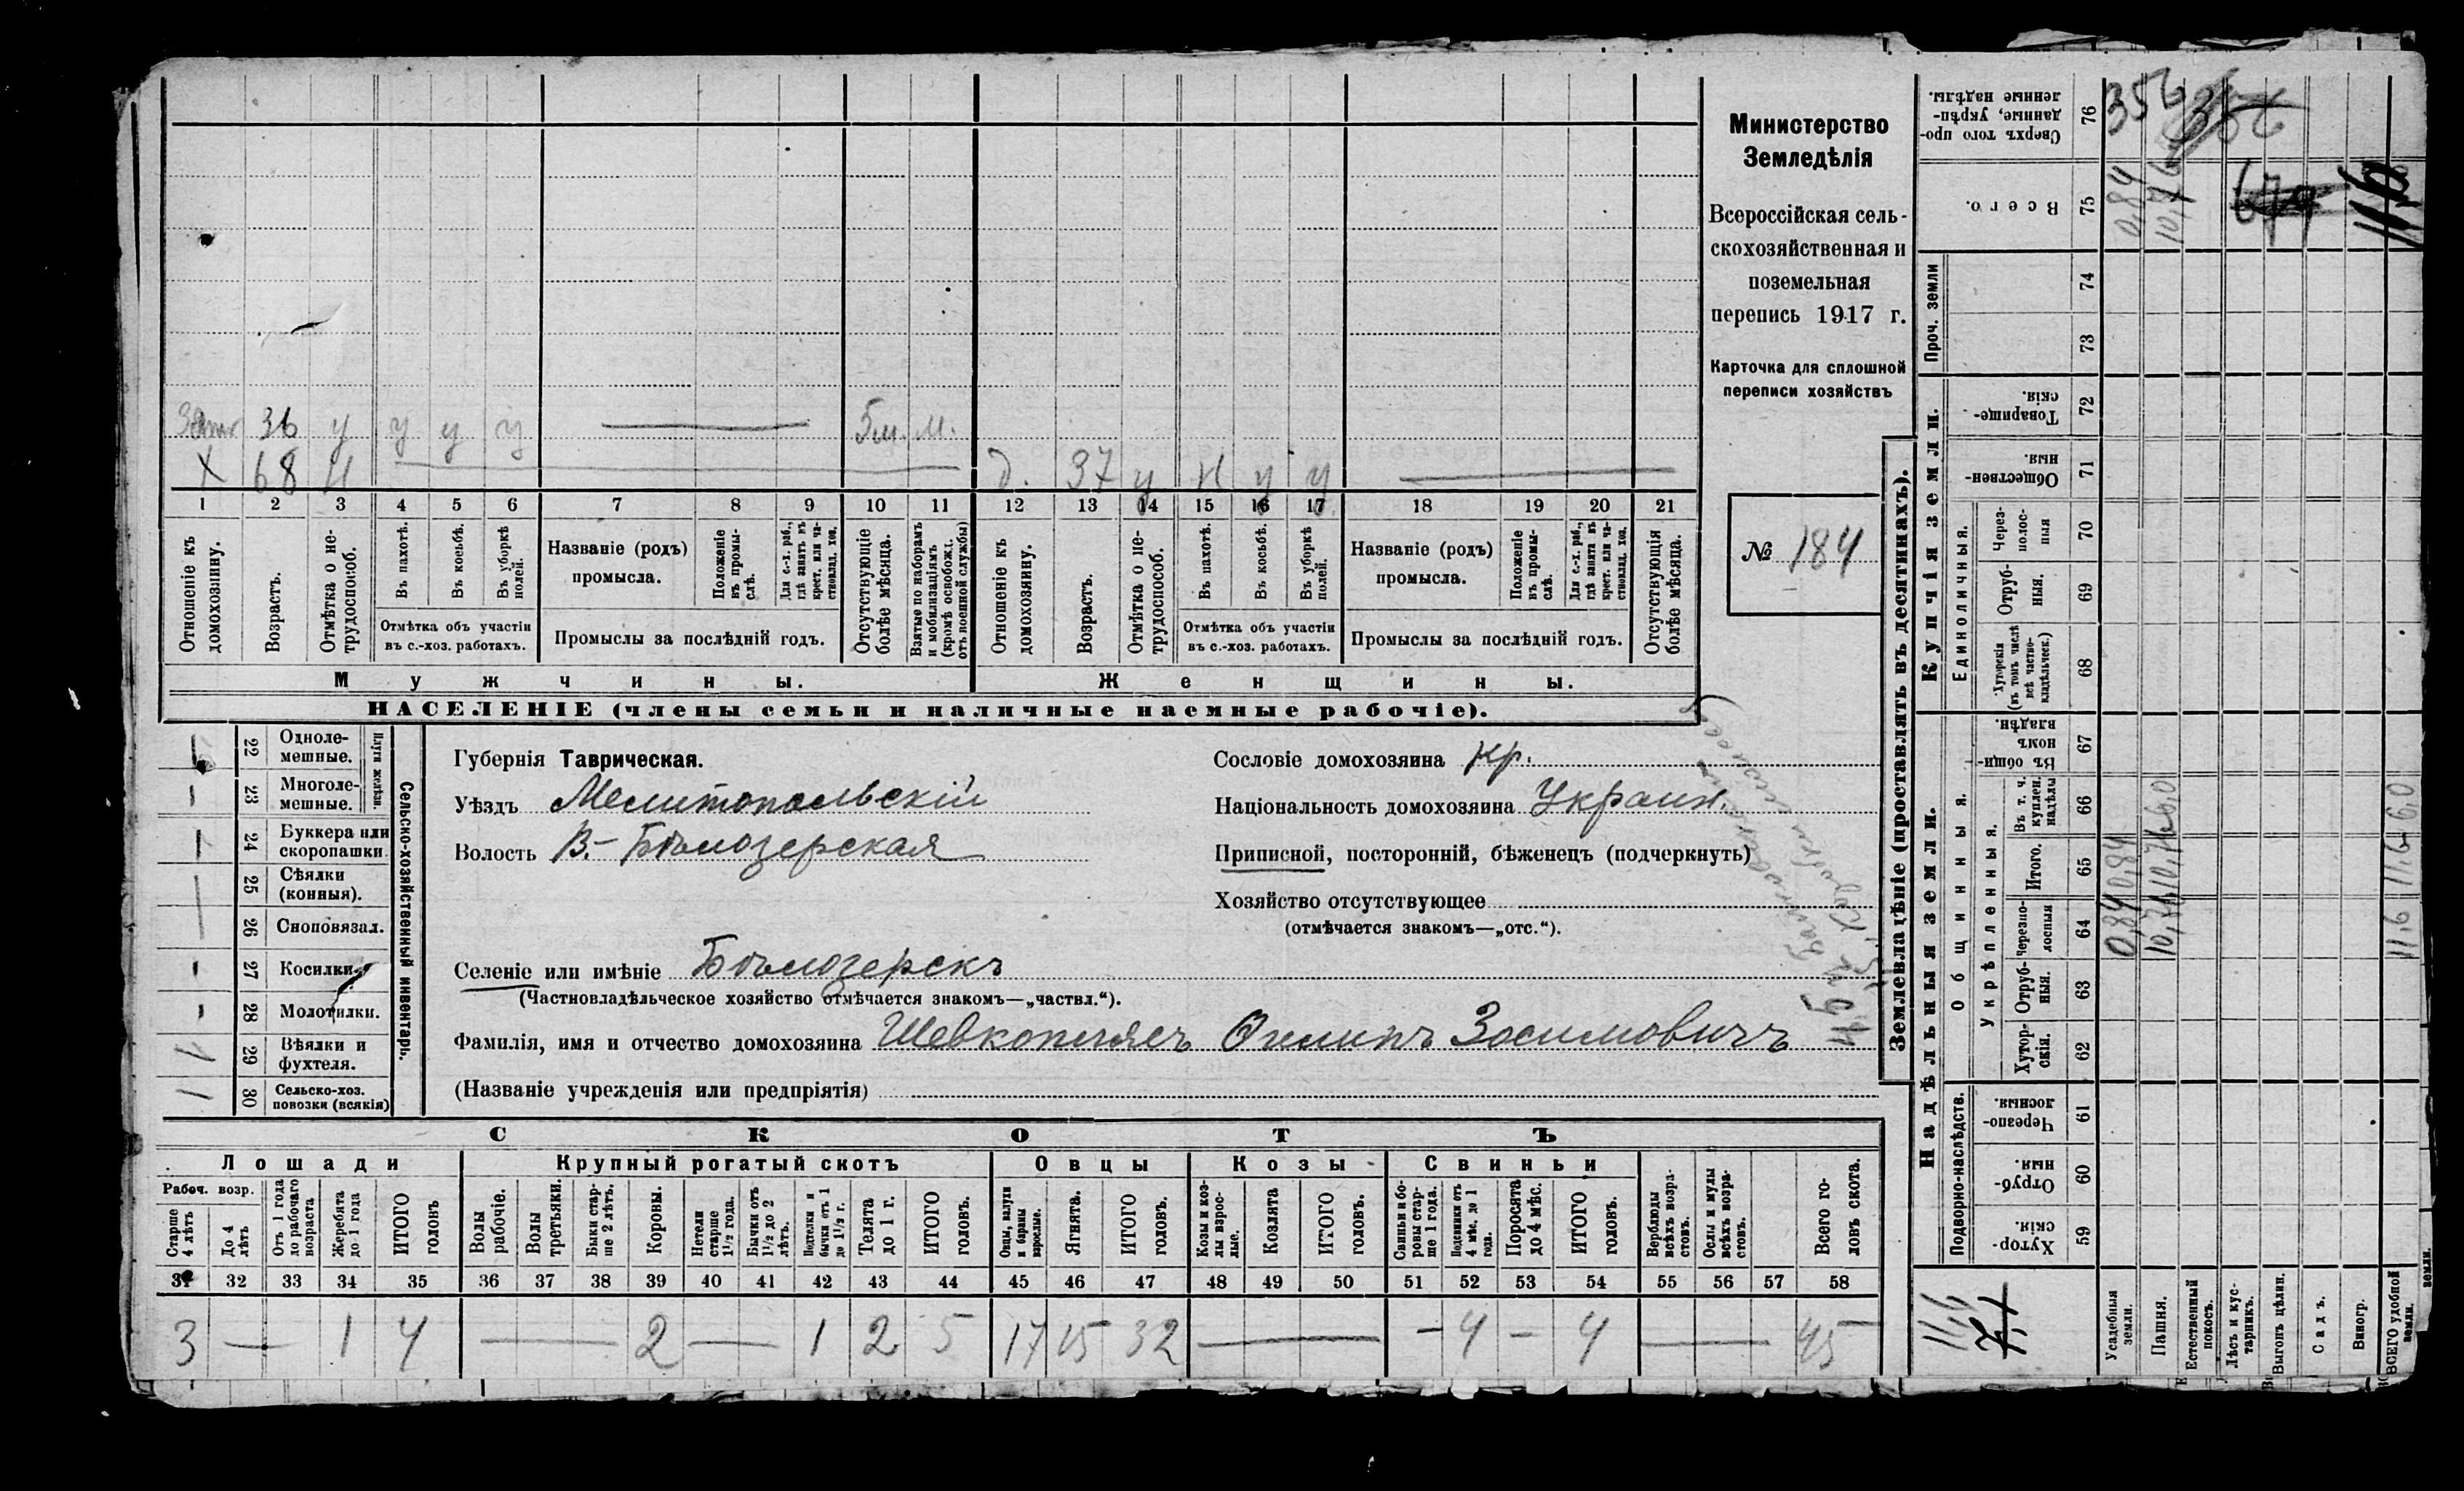 Министерство
Земледѣлія
Всероссійская сель-
скохозяйственная и
поземельная
перепись 1917 г.
Карточка для сплошной
переписи хозяйствъ
№ 184
Зять 36 у у у у 5м. м.
Х 68 н д. 37 у н у у
1 2 3 4 5 6 7 8 9 10 11 12 13 14 15 16 17 18 19 20 21
Отношеніе къ домохозяину.
Возрастъ.
Отмѣтка о не-трудоспособ.
Въ пахотѣ.
Въ косьбѣ.
Въ уборкѣ полей.
Отмѣтка объ участіи
въ с.-хоз. работахъ.
Названіе (родъ)
промысла.
Положеніе въ промы-слѣ.
Для с.-х. раб., гдѣ занятъ въ крест. или ча-стновлад. хоз.
Промыслы за послѣдній годъ.
Отсутствующіе болѣе мѣсяца.
Взятые по наборамъ и мобилизаціямъ (кромѣ освобожд. отъ военной службы)
Отношеніе къ домохозяину.
Возрастъ.
Отмѣтка о не-трудоспособ.
Въ пахотѣ.
Въ косьбѣ.
Въ уборкѣ полей.
Отмѣтка объ участіи
въ с.-хоз. работахъ.
Названіе (родъ)
промысла.
Положеніе въ промы-слѣ.
Для с.-х. раб., гдѣ занята въ крест. или ча-стновлад. хоз.
Промыслы за послѣдній годъ.
Отсутствующія болѣе мѣсяца.
Мужчины. Женщины.
НАСЕЛЕНІЕ (члены семьи и наличные наемные рабочіе).
22 Одноле-мешные.
23 Многоле-мешные.
Плуги желѣзн.
24 Буккера или скоропашки
25 Сѣялки (конныя).
26 Сноповязал.
27 Косилки.
28 Молотилки.
1 29 Вѣялки и фухтеля.
1 30 Сельско-хоз. повозки (всякія)
Сельско-хозяйственный инвентарь.
Губернія Таврическая.
Уѣздъ Мелитопольскій
Волость В.-Бѣлозерская
Сословіе домохозяина кр.
Національность домохозяина Украин.
Приписной, посторонній, бѣженецъ (подчеркнуть)
Хозяйство отсутствующее
(отмѣчается знакомъ—„отс.“).
Селеніе или имѣніе Бѣлозерскъ
(Частновладѣльческое хозяйство отмѣчается знакомъ—„частвл.“).
Фамилія, имя и отчество домохозяина Шевкоплясъ Филипъ Зосимовичъ
(Названіе учрежденія или предпріятія)
СКОТЪ
Лошади Крупный рогатый скотъ Овцы Козы Свиньи
Рабоч. возр.
Старше 4 лѣтъ
До 4 лѣтъ
Отъ 1 года до рабочаго возраста
Жеребята до 1 года
ИТОГО головъ
Волы рабочіе.
Волы третьяки.
Быки стар-ше 2 лѣтъ.
Коровы.
Нетели старше 1½ года.
Бычки отъ 1½ до 2 лѣтъ.
Подтелки и бычки отъ 1 до 1½ г.
Телята до 1 г.
ИТОГО головъ.
Овцы, валухи и бараны взрослые.
Ягнята.
ИТОГО головъ.
Козы и коз-лы взрос-лые.
Козлята
ИТОГО головъ.
Свиньи и бо-ровы стар-ше 1 года.
Подсвинки отъ 4 мѣс. до 1 года.
Поросята до 4 мѣс.
ИТОГО головъ.
Верблюды всѣхъ возра-стовъ.
Ослы и мулы всѣхъ возра-стовъ.
Всего го-ловъ скота.
31 32 33 34 35 36 37 38 39 40 41 42 43 44 45 46 47 48 49 50 51 52 53 54 55 56 57 58
3 — 1 4 — 2 — 1 2 5 17 15 32 — - 4 - 4 — 45
Землевладѣніе (проставлять въ десятинахъ).
Купчія земли.
Надѣльныя земли.
Сверхъ того про-данные, укрѣп-ленные надѣлы. 76
Всего. 75
Проч. земли 74
73
Товарище-скія. 72
Обществен-ныя. 71
Единоличныя.
Через-полос-ныя 70
Отруб-ныя. 69
Хуторскія (въ томъ числѣ всѣ частно-владѣльческ.) 68
Общинныя.
Въ общи-номъ владѣн. 67
Укрѣпленныя.
Въ т. ч. куплен. надѣлы 66
Итого. 65
Черезпо-лосныя 64
Отруб-ныя. 63
Хутор-скія. 62
Подворно-наслѣдств.
Черезпо-лосныя. 61
Отруб-ныя. 60
Хутор-скія. 59
Усадебныя земли. 0,84 0,84 0,84
Пашня. 10,76 10,76 6,0 10,76
Естественный покосъ.
Лѣсъ и кус-тарникъ.
Выгонъ цѣлин.
Садъ.
Виногр.
ВСЕГО удобной земли. 11,6 11,6 6,0
356
11,6